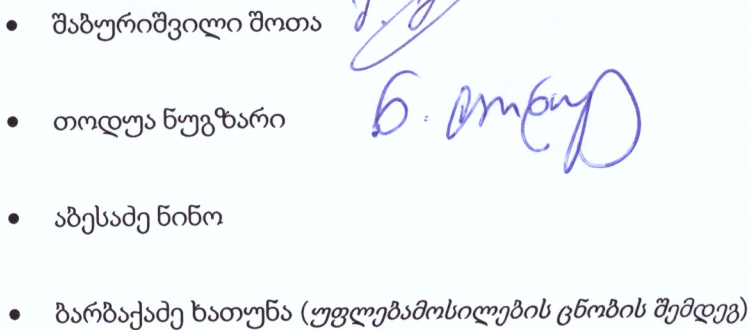 • შაბურიშვილი შოთა
• თოდუა ნუგზარი ნ. თოდუა
• აბესაძე ნინო
• ბარბაქაძე ხათუნა (უფლებამოსილების ცნობის შემდეგ)